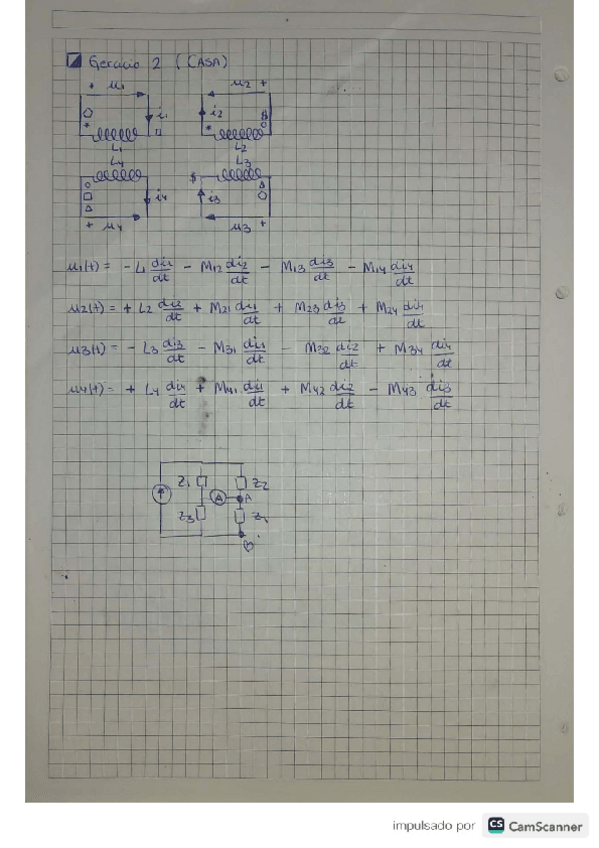 Gercicio 2 (CASA)
+ u1
u2 +
i1
i2
L1
L2
L4
L3
i4
$
i3
+ u4
u3 +
u1(t) = - L1 di1/dt - M12 di2/dt - M13 di3/dt - M14 di4/dt
u2(t) = + L2 di2/dt + M21 di1/dt + M23 di3/dt + M24 di4/dt
u3(t) = - L3 di3/dt - M31 di1/dt - M32 di2/dt + M34 di4/dt
u4(t) = + L4 di4/dt + M41 di1/dt + M42 di2/dt - M43 di3/dt
Z1
Z2
A
A
Z3
impulsado por CS CamScanner